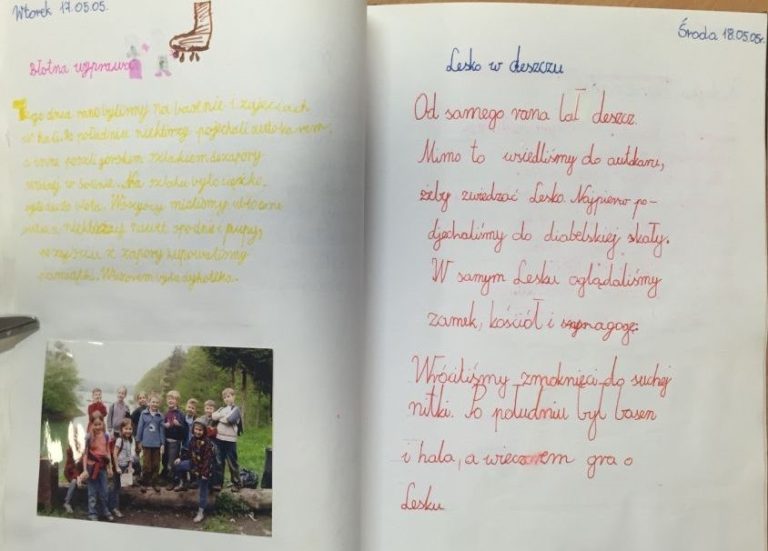 Wtorek 17.05.05.
Błotna wyprawa
Tego dnia rano byliśmy na basenie i zajęciach
w hali. Po południu niektórzy pojechali autokarem,
a inne poszli górskim szlakiem do zapory
w Solinie. Na szlaku było ciężko,
błota. Wszyscy mieliśmy ubłocone
nawet spodnie i pupy,
z zapory kupowaliśmy
pamiątki. Wieczorem była dyskoteka.
Środa 18.05.05r.
Lesko w deszczu
Od samego rana lał deszcz.
Mimo to wsiedliśmy do autokaru,
żeby zwiedzać Lesko. Najpierw po-
djechaliśmy do diabelskiej skały.
W samym Lesku oglądaliśmy
zamek, kościół i synagogę.
Wróciliśmy zmoknięci do suchej
nitki. Po południu był basen
i hala, a wieczorem gra o
Lesku